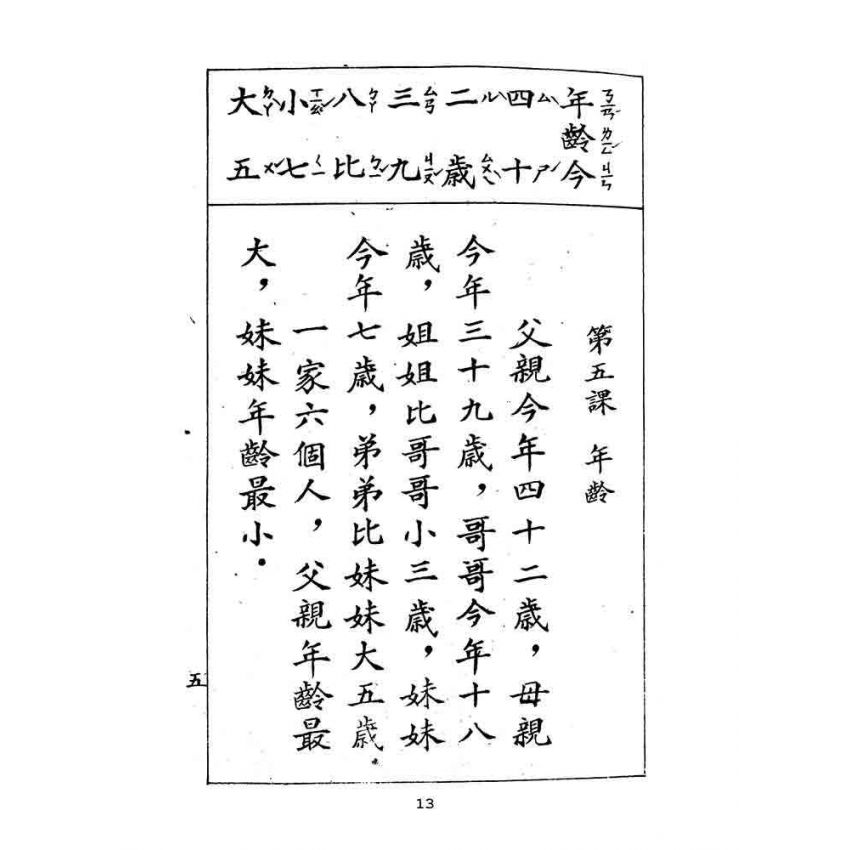 年ㄋㄧㄢˊ齡ㄌㄧㄥˊ今ㄐㄧㄣ
四ㄙˋ十ㄕˊ
二ㄦˋ歲ㄙㄨㄟˋ
三ㄙㄢ九ㄐㄧㄡˇ
八ㄅㄚ比ㄅㄧˇ
小ㄒㄧㄠˇ七ㄑㄧ
大ㄉㄚˋ五ㄨˇ
第五課 年齡
父親今年四十二歲,母親
今年三十九歲,哥哥今年十八
歲,姐姐比哥哥小三歲,妹妹
今年七歲,弟弟比妹妹大五歲.
一家六個人,父親年齡最
大,妹妹年齡最小.
五
13